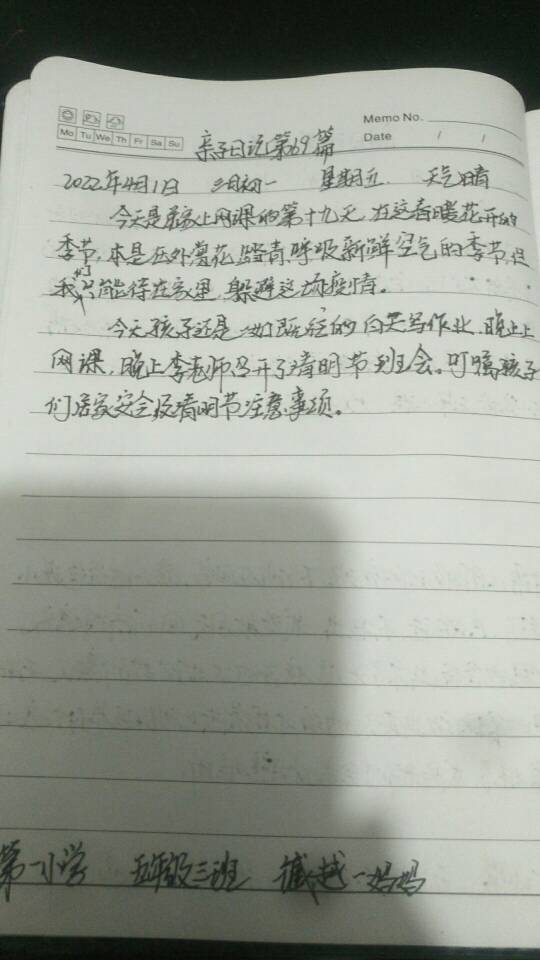 Memo No.
Mo Tu We Th Fr Sa Su
Date / /
亲子日记第69篇
2022年4月1日 三月初一 星期五 天气晴
今天是居家上网课的第十九天,在这春暖花开的
季节,本是在外赏花,踏青,呼吸新鲜空气的季节,但
我们只能待在家里,躲避这场疫情。
今天孩子还是一如既往的白天写作业,晚上上
网课,晚上李老师召开了清明节班会。叮嘱孩子
们居家安全及清明节注意事项。
第一小学 五年级三班 越一妈妈